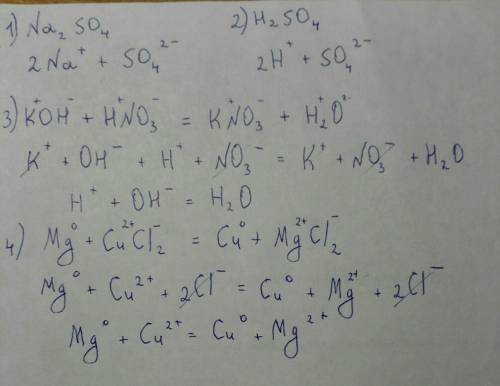 1) Na₂SO₄ 2) H₂SO₄
2Na⁺ + SO₄²⁻ 2H⁺ + SO₄²⁻
3) K⁺OH⁻ + H⁺NO₃⁻ = K⁺NO₃⁻ + H₂⁺O²⁻
K⁺ + OH⁻ + H⁺ + NO₃⁻ = K⁺ + NO₃⁻ + H₂O
H⁺ + OH⁻ = H₂O
4) Mg⁰ + Cu²⁺Cl₂⁻ = Cu⁰ + Mg²⁺Cl₂⁻
Mg⁰ + Cu²⁺ + 2Cl⁻ = Cu⁰ + Mg²⁺ + 2Cl⁻
Mg⁰ + Cu²⁺ = Cu⁰ + Mg²⁺